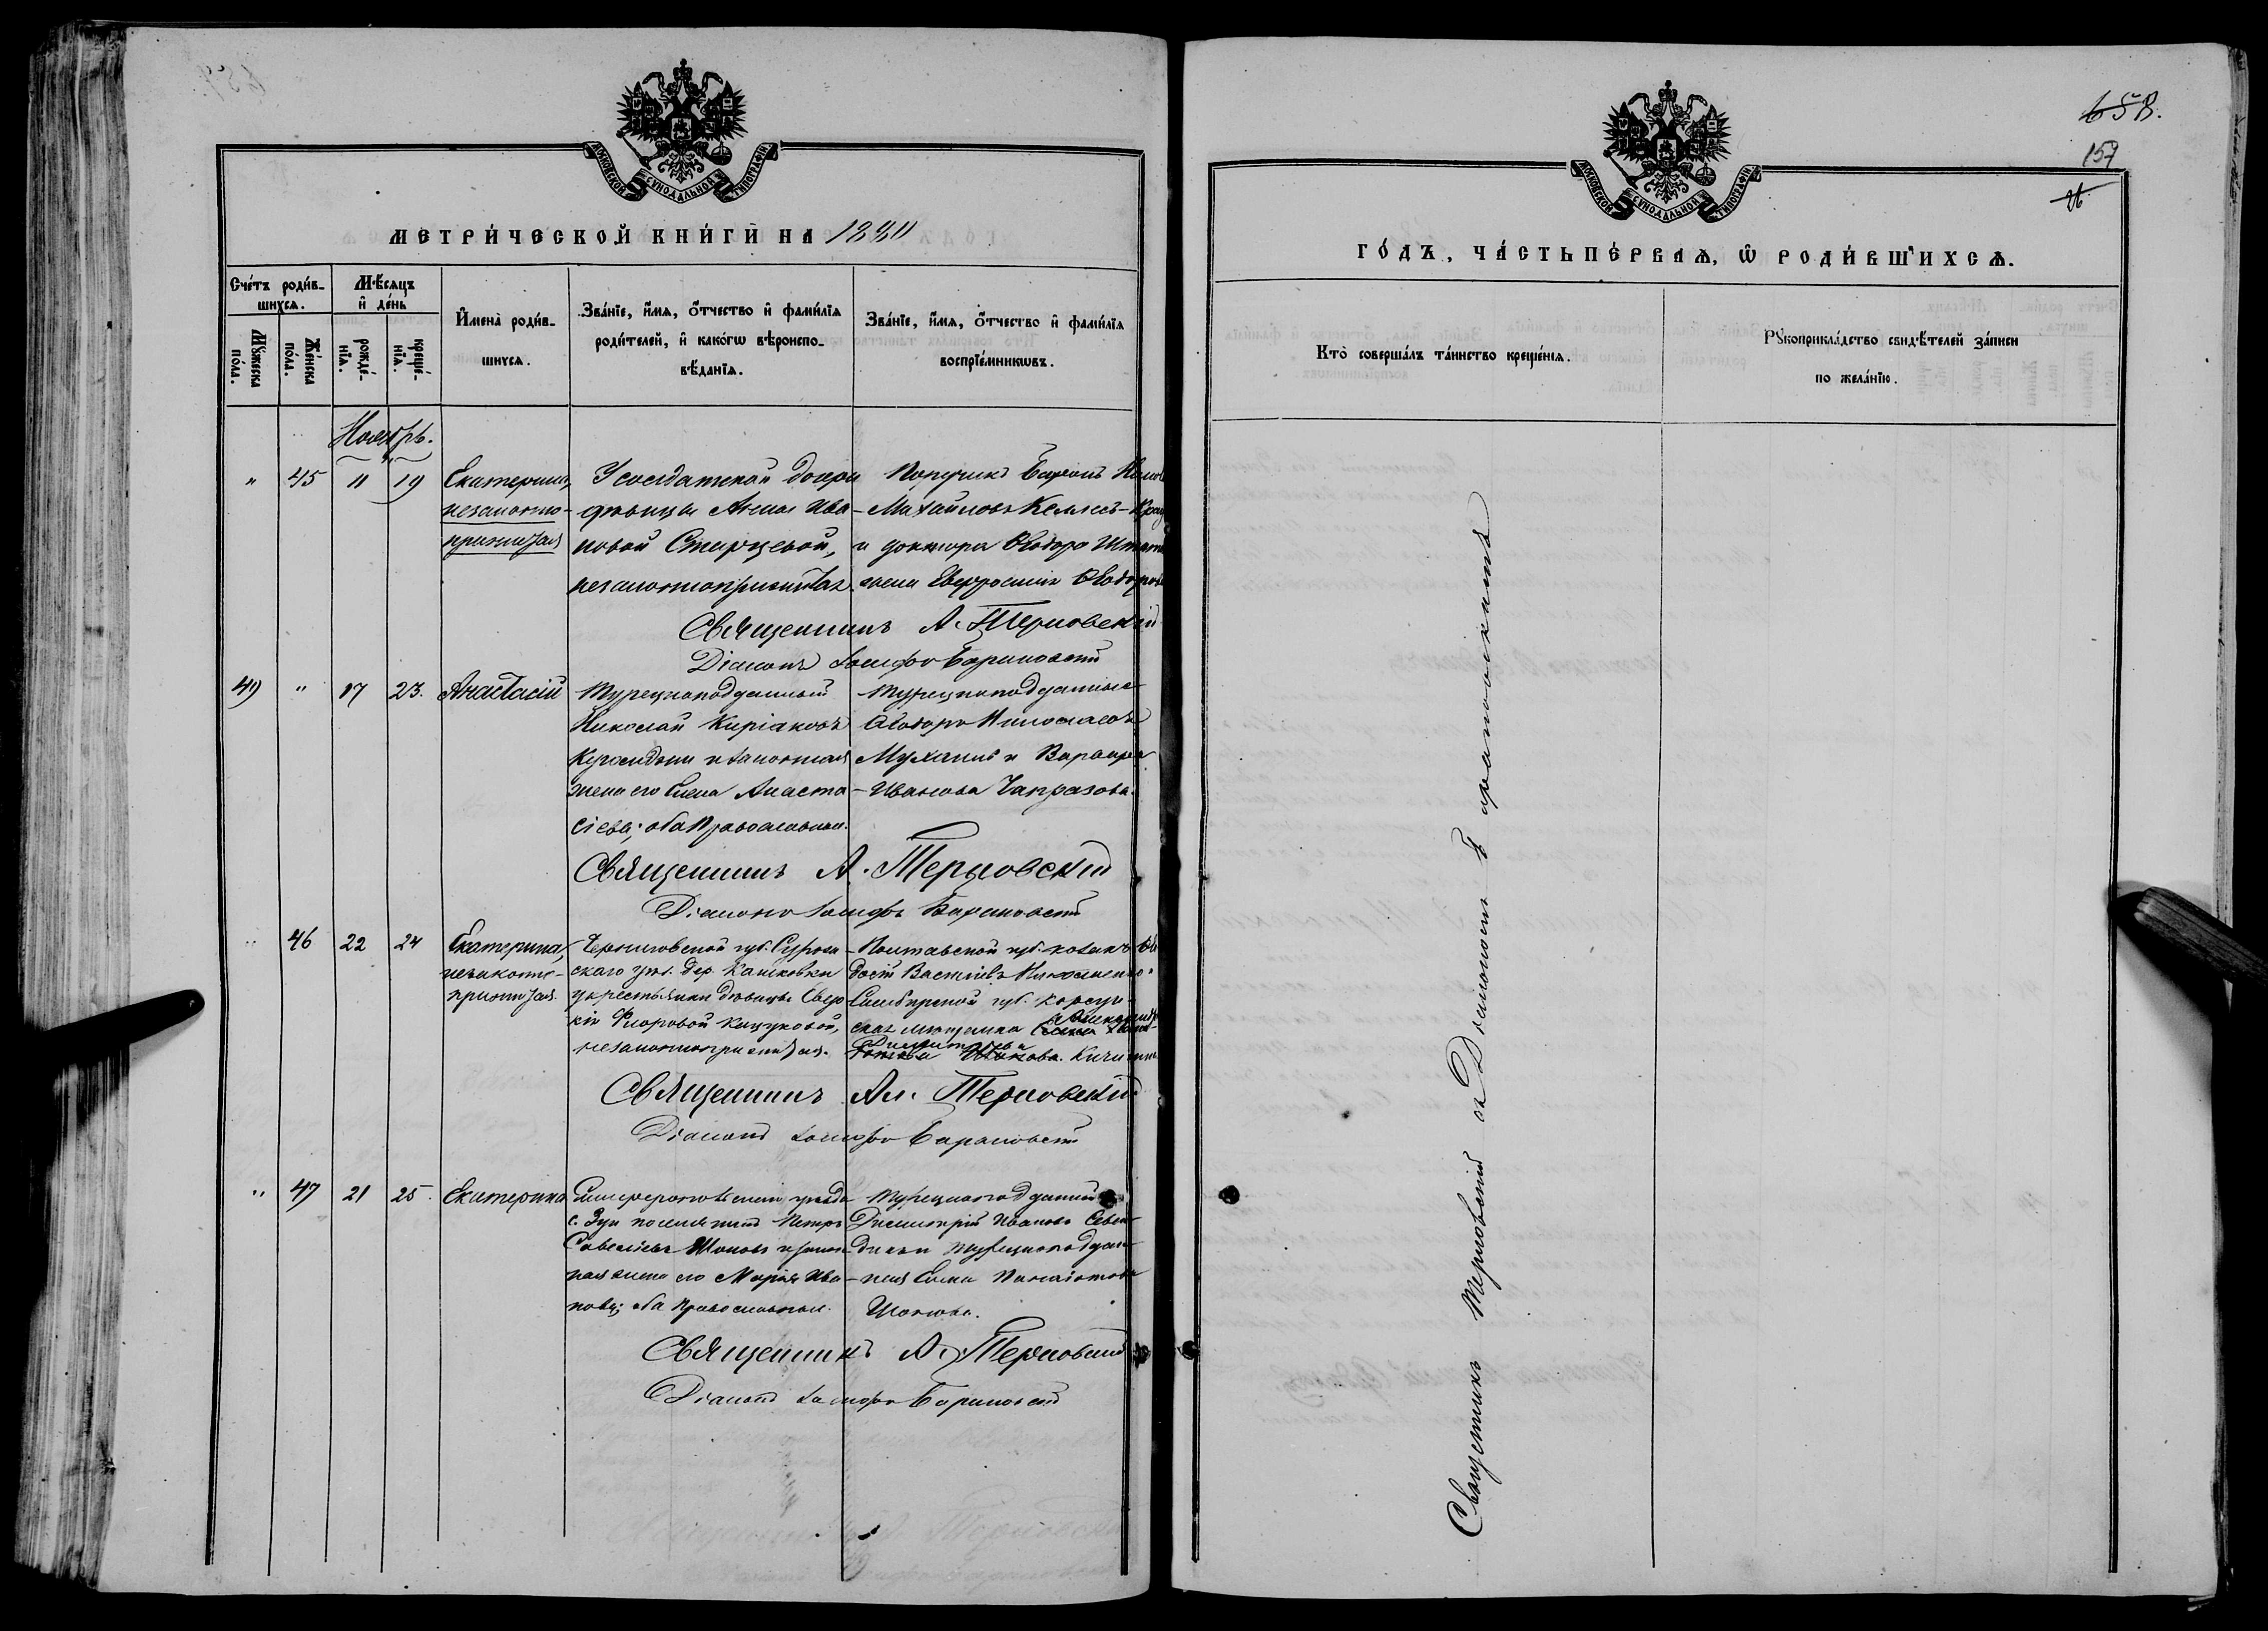 МОСКОВСКОЙ СѴНОДАЛЬНОЙ ТИПОГРАФІИ
МЕТРИ́ЧЕСКОЙ КНИ́ГИ НА 1880
Счéтъ роди́в-
шихся.
Мѣ́сяцъ
и҆ де́нь
Мꙋ́жеска по́ла.
Же́нска по́ла.
рожде́-нїѧ.
креще́-нїѧ.
И҆мена̀ роди́в-
шихся.
Зва́нїе, и҆́мѧ, ѻ҆́тчество и҆ фами́лїѧ
роди́телей, и҆ како́гѡ вѣ́роиспо-
вѣ́данїѧ.
Зва́нїе, и҆́мѧ, ѻ҆́тчество и҆ фами́лїѧ
воспрїе́мникѡвъ.
Ноябрь.
" 45 11 19 Екатерина,
незаконно-
прижитая
У солдатской дочери
дѣвицы Анны Ива-
новой Старцевой,
незаконноприжитая.
Поручикъ Баронъ
Михайловъ
и доктора Ѳеодора
жена Евфросинія Ѳеодоров
Священникъ А. Терновскій
Діаконъ Іосифъ Барановскій
49 " 17 23. Анастасій
Турецкоподданный
Николай Киріаковъ
и законная
жена его Елена Анаста-
сіева; оба Православные.
Турецкоподданные
Ѳеодоръ Николаевъ
и Варвара
Иванова Чапразова.
Священникъ А. Терновскій
Діаконъ Іосифъ Барановскій
" 46 22 24 Екатерина,
незаконно-
прижитая.
Черниговской губ. Сураж-
скаго уѣз. дер. Кашковки
у крестьянки дѣвицы Евдо-
кіи Флоровой Кацуковой,
незаконноприжитая.
Полтавской губ. козакъ Ѳео
досій Васильевъ Николаенко.
Симбирской губ. Корсун-
ская мѣщанка Александра
Димитріева
Священникъ Ал. Терновскій
Діаконъ Іосифъ Барановскій
" 47 21 25. Екатерина
Симферопольскаго уѣзда
с. Зуи поселянинъ Петръ
Савельевъ Шоповъ и закон-
ная жена его Марія Ива-
нова; оба Православные.
Турецкоподданный
Димитрій Ивановъ
и турецкоподдан-
ная Елена Панаіотова
Шопова.
Священникъ А. Терновскій
Діаконъ Іосифъ Барановскій
658.
157
26
МОСКОВСКОЙ СѴНОДАЛЬНОЙ ТИПОГРАФІИ
ГО́ДЪ, ЧА́СТЬ ПЕ́РВАѦ, Ѽ РОДИ́ВШИХСѦ.
Кто̀ соверша́лъ та́инство креще́нїѧ.
Рꙋкоприкла́дство свидѣ́телей за́писи
по жела́нїю.
Священникъ Терновскій съ Діакономъ Барановскимъ